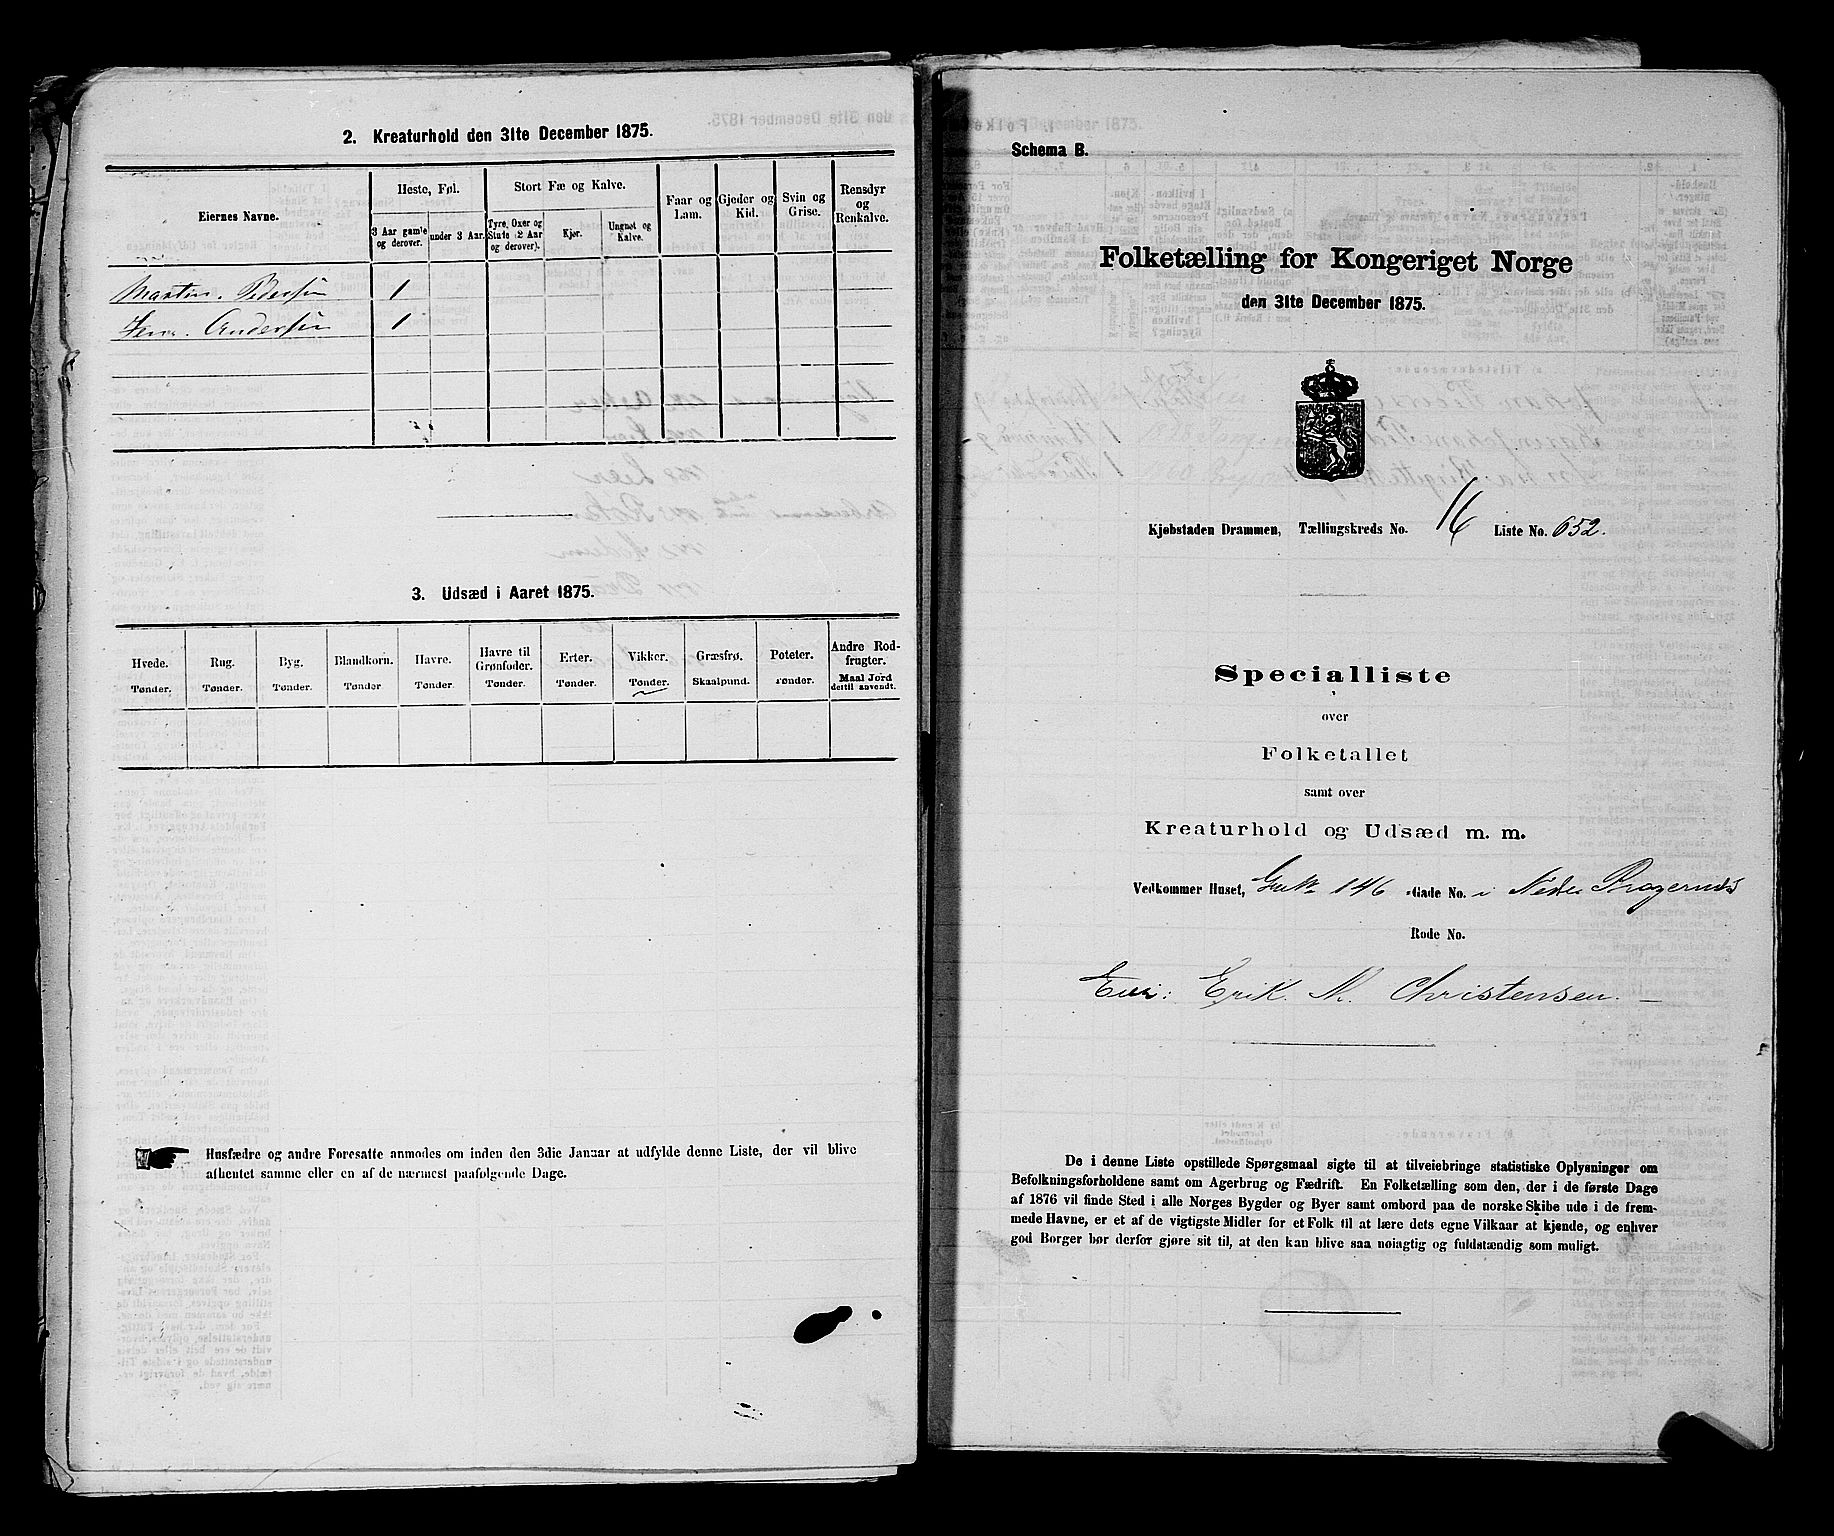 2. Kreaturhold den 31te December 1875.
Eiernes Navne.
Heste, Føl.
3 Aar gamle og derover.
under 3 Aar.
Stort Fæ og Kalve.
Tyre, Oxer og Stude (2 Aar og derover).
Kjør.
Ungnøt og Kalve.
Faar og Lam.
Gjeder og Kid.
Svin og Grise.
Rensdyr og Renkalve.
Martin Pedersen 1
Andersen 1
3. Udsæd i Aaret 1875.
Hvede. Rug. Byg. Blandkorn. Havre. Havre til Grønfoder. Erter. Vikker. Græsfrø. Poteter. Andre Rodfrugter.
Tønder. Tønder. Tønder. Tønder Tønder. Tønder. Tønder. Tønder. Skaalpund. Tønder. Maal Jord dertil anvendt.
Husfædre og andre Foresatte anmodes om inden den 3die Januar at udfylde denne Liste, der vil blive
afhentet samme eller en af de nærmest paafølgende Dage.
Schema B.
Folketælling for Kongeriget Norge
den 31te December 1875.
Kjøbstaden Drammen, Tællingskreds No. 16 Liste No. 652.
Specialliste
over
Folketallet
samt over
Kreaturhold og Udsæd m. m.
Vedkommer Huset, 146 Gade No. i Nedre Bragernæs
Rode No.
Eier: Erik M. Christensen.
De i denne Liste opstillede Spørgsmaal sigte til at tilveiebringe statistiske Oplysninger om
Befolkningsforholdene samt om Agerbrug og Fædrift. En Folketælling som den, der i de første Dage
af 1876 vil finde Sted i alle Norges Bygder og Byer samt ombord paa de norske Skibe ude i de frem-
mede Havne, er et af de vigtigste Midler for et Folk til at lære dets egne Vilkaar at kjende, og enhver
god Borger bør derfor gjøre sit til, at den kan blive saa nøiagtig og fuldstændig som muligt.